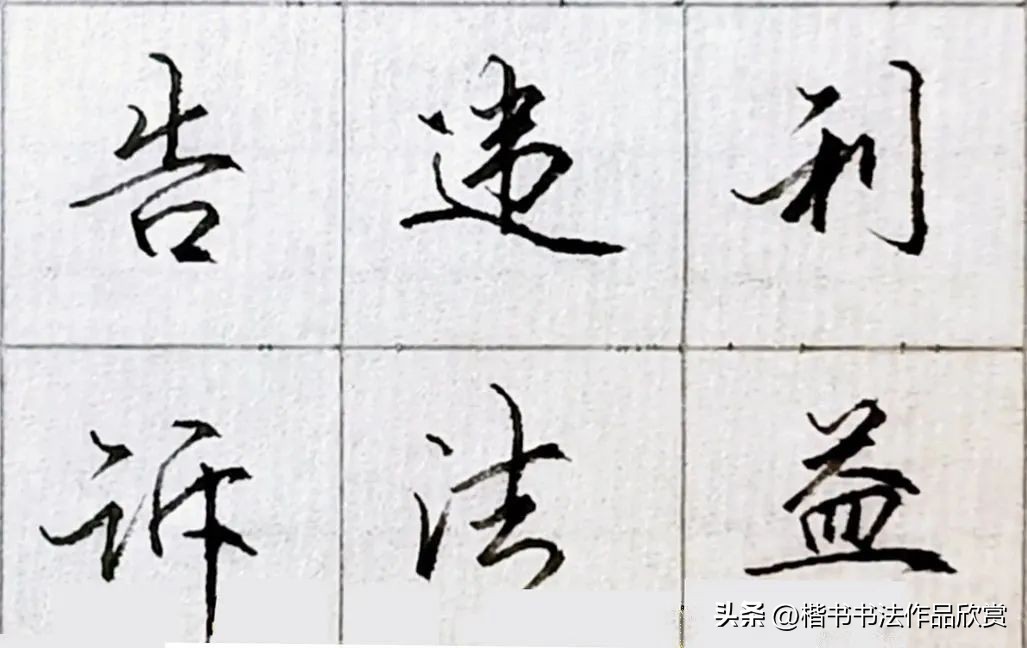 告违利
诉法益
头条 @楷书书法作品欣赏